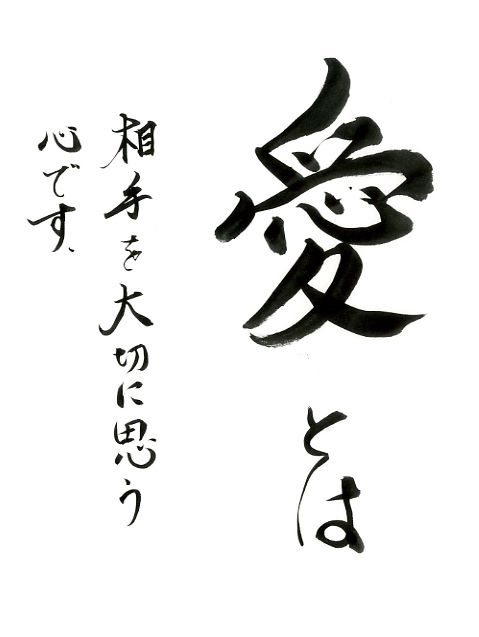 愛とは
相手を大切に思う
心です、